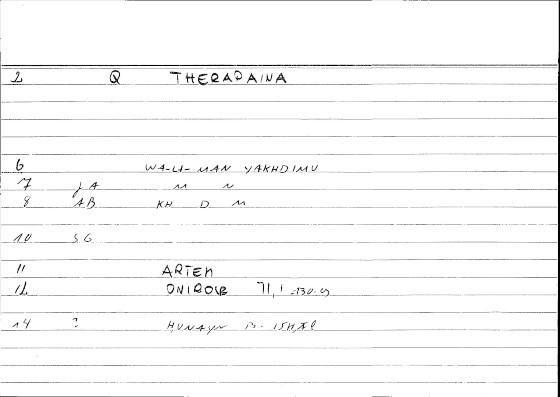 2 Q THERAPAINA
6 WA-LI-MAN YAKHDIMU
7 JA M N
8 AB KH D M
10 SG
11 ARTEM
12 ONIROCR 71,1
14 ? HUNAYN B. ISHAQ